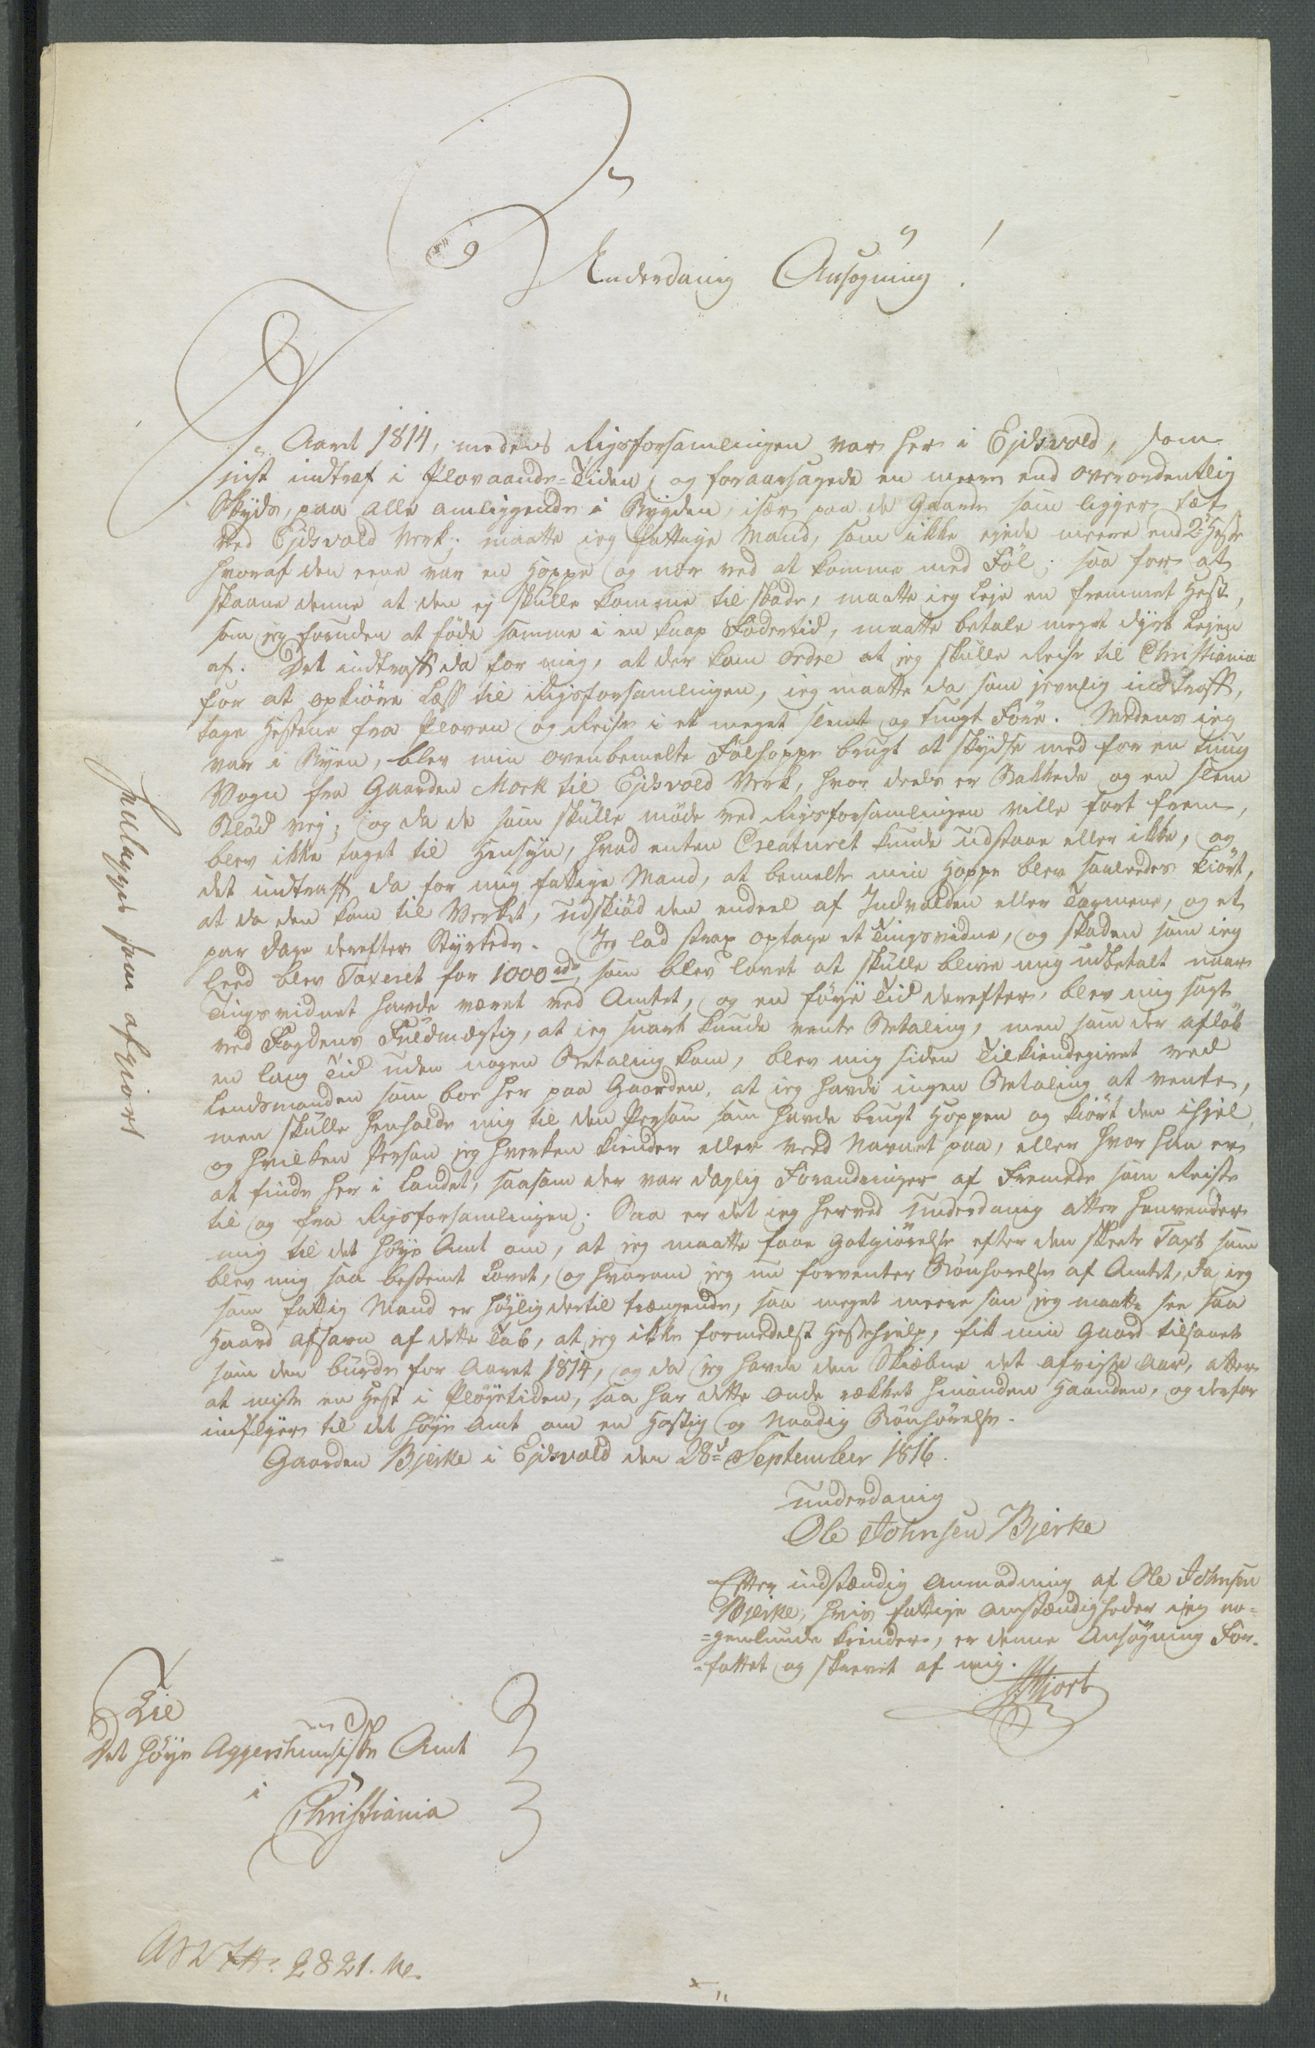 Underdanig Ansøgning!
I Aaret 1814, medens Rigsforsamlingen var her i Ejdsvold, som
just indtraf i Plovaands-Tiden, og foraarsagede en meere end overordentlig
Skyds, paa alle omliggende i Bygden, især paa de Gaarde som ligger tæt
ved Ejdsvold Verk; maatte jeg fattige Mand, som ikke ejede meere end 2de Heste
hvoraf den eene var en Hoppe og nær ved at komme med Føl; saa for at
skaane denne at den ej skulle komme til skade, maatte jeg leje en fremmet Hest,
som jeg foruden at føde samme i en knap Fodertid, maatte betale meget dyrt Lejen
af. Det indtraff da for mig, at der kom ordre at jeg skulle Reise til Christiania
for at opkiøre Læss til Rigsforsamlingen, jeg maatte da som jevnlig indtraff,
tage Hestene fra Ploven og Reise i et meget slemt og tungt Føre. Medens jeg
var i Byen, blev min ovenbemelte Følhoppe brugt at skydse med for en tung
Vogn fra Gaarden Mork til Ejdsvold Verk, hvor deels er Bakkede og en slem
Blød vej; og da de som skulle møde ved Rigsforsamlingen ville fort frem,
blev ikke taget til Hensyn, hvad enten Creaturet kunde udstaae eller ikke, og
det indtraff da for mig fattige Mand, at bemelte min Hoppe blev saaledes kiørt,
at da den kom til Verket, udskiød den endeel af Indvolden eller Tarmene, og et
par Dage derefter Styrtede. Jeg lod strax optage et Tingsvidne, og skaden som jeg
leed blev Taxeret for 1000 rdr, som blev lovet at skulle blive mig udbetalt naar
Tingsvidnet havde været ved Amtet, og en føye Tid derefter, blev mig sagt
ved Fogdens Fuldmægtig, at jeg snart kunde vente Betaling, men som der afløb
en lang Tid uden nogen Betaling kom, blev mig siden Tilkiendegivet ved
Lendsmanden som boe her paa Gaarden, at jeg havde ingen Betaling at vente,
men skulle henholde mig til den Person som havde brugt Hoppen og kiørt den ihjel,
og hvilken Person jeg hverken kiender eller veed Navnet paa, eller hvor han er
at finde her i Landet, saasom der var daglig Forandringer af Fremede som Reiste
til og fra Rigsforsamlingen. Saa er det jeg herved underdanig atter henvender
mig til det høye Amt om, at jeg maatte faae Godtgiørelse efter den skeete Taxt som
blev mig saa bestemt Lovet, og hvorom jeg nu forventer Bønhørelse af Amtet, da jeg
som fattig Mand er høylig dertil trængende, saa meget meere som jeg maatte see saa
haard afsavn af dette Tab, at jeg ikke formedelst Hestehielp, fik min Gaard tilsaaet
som den burde for Aaret 1814, og da jeg havde den Skiæbne det afvigte Aar, atter
at miste en Hest i Pløyetiden, saa har dette onde rækket hinanden Haanden, og derfor
indflyer til det høye Amt om en Hastig og Naadig Bønhørelse.
Gaarden Bjerke i Ejdsvold den 28d September 1816.
underdanig
Ole Johnsen Bjerke
Efter indstændig Anmodning af Ole Johnsen
Bjerke, hvis fattige Omstændigheder jeg no-
=genlunde kiender, er denne Ansøgning For-
=fattet og skrevet af mig.
Hjort
Til
Det høye Aggershuusiske Amt
i
Christiania
henlægges som afgiort
2821.